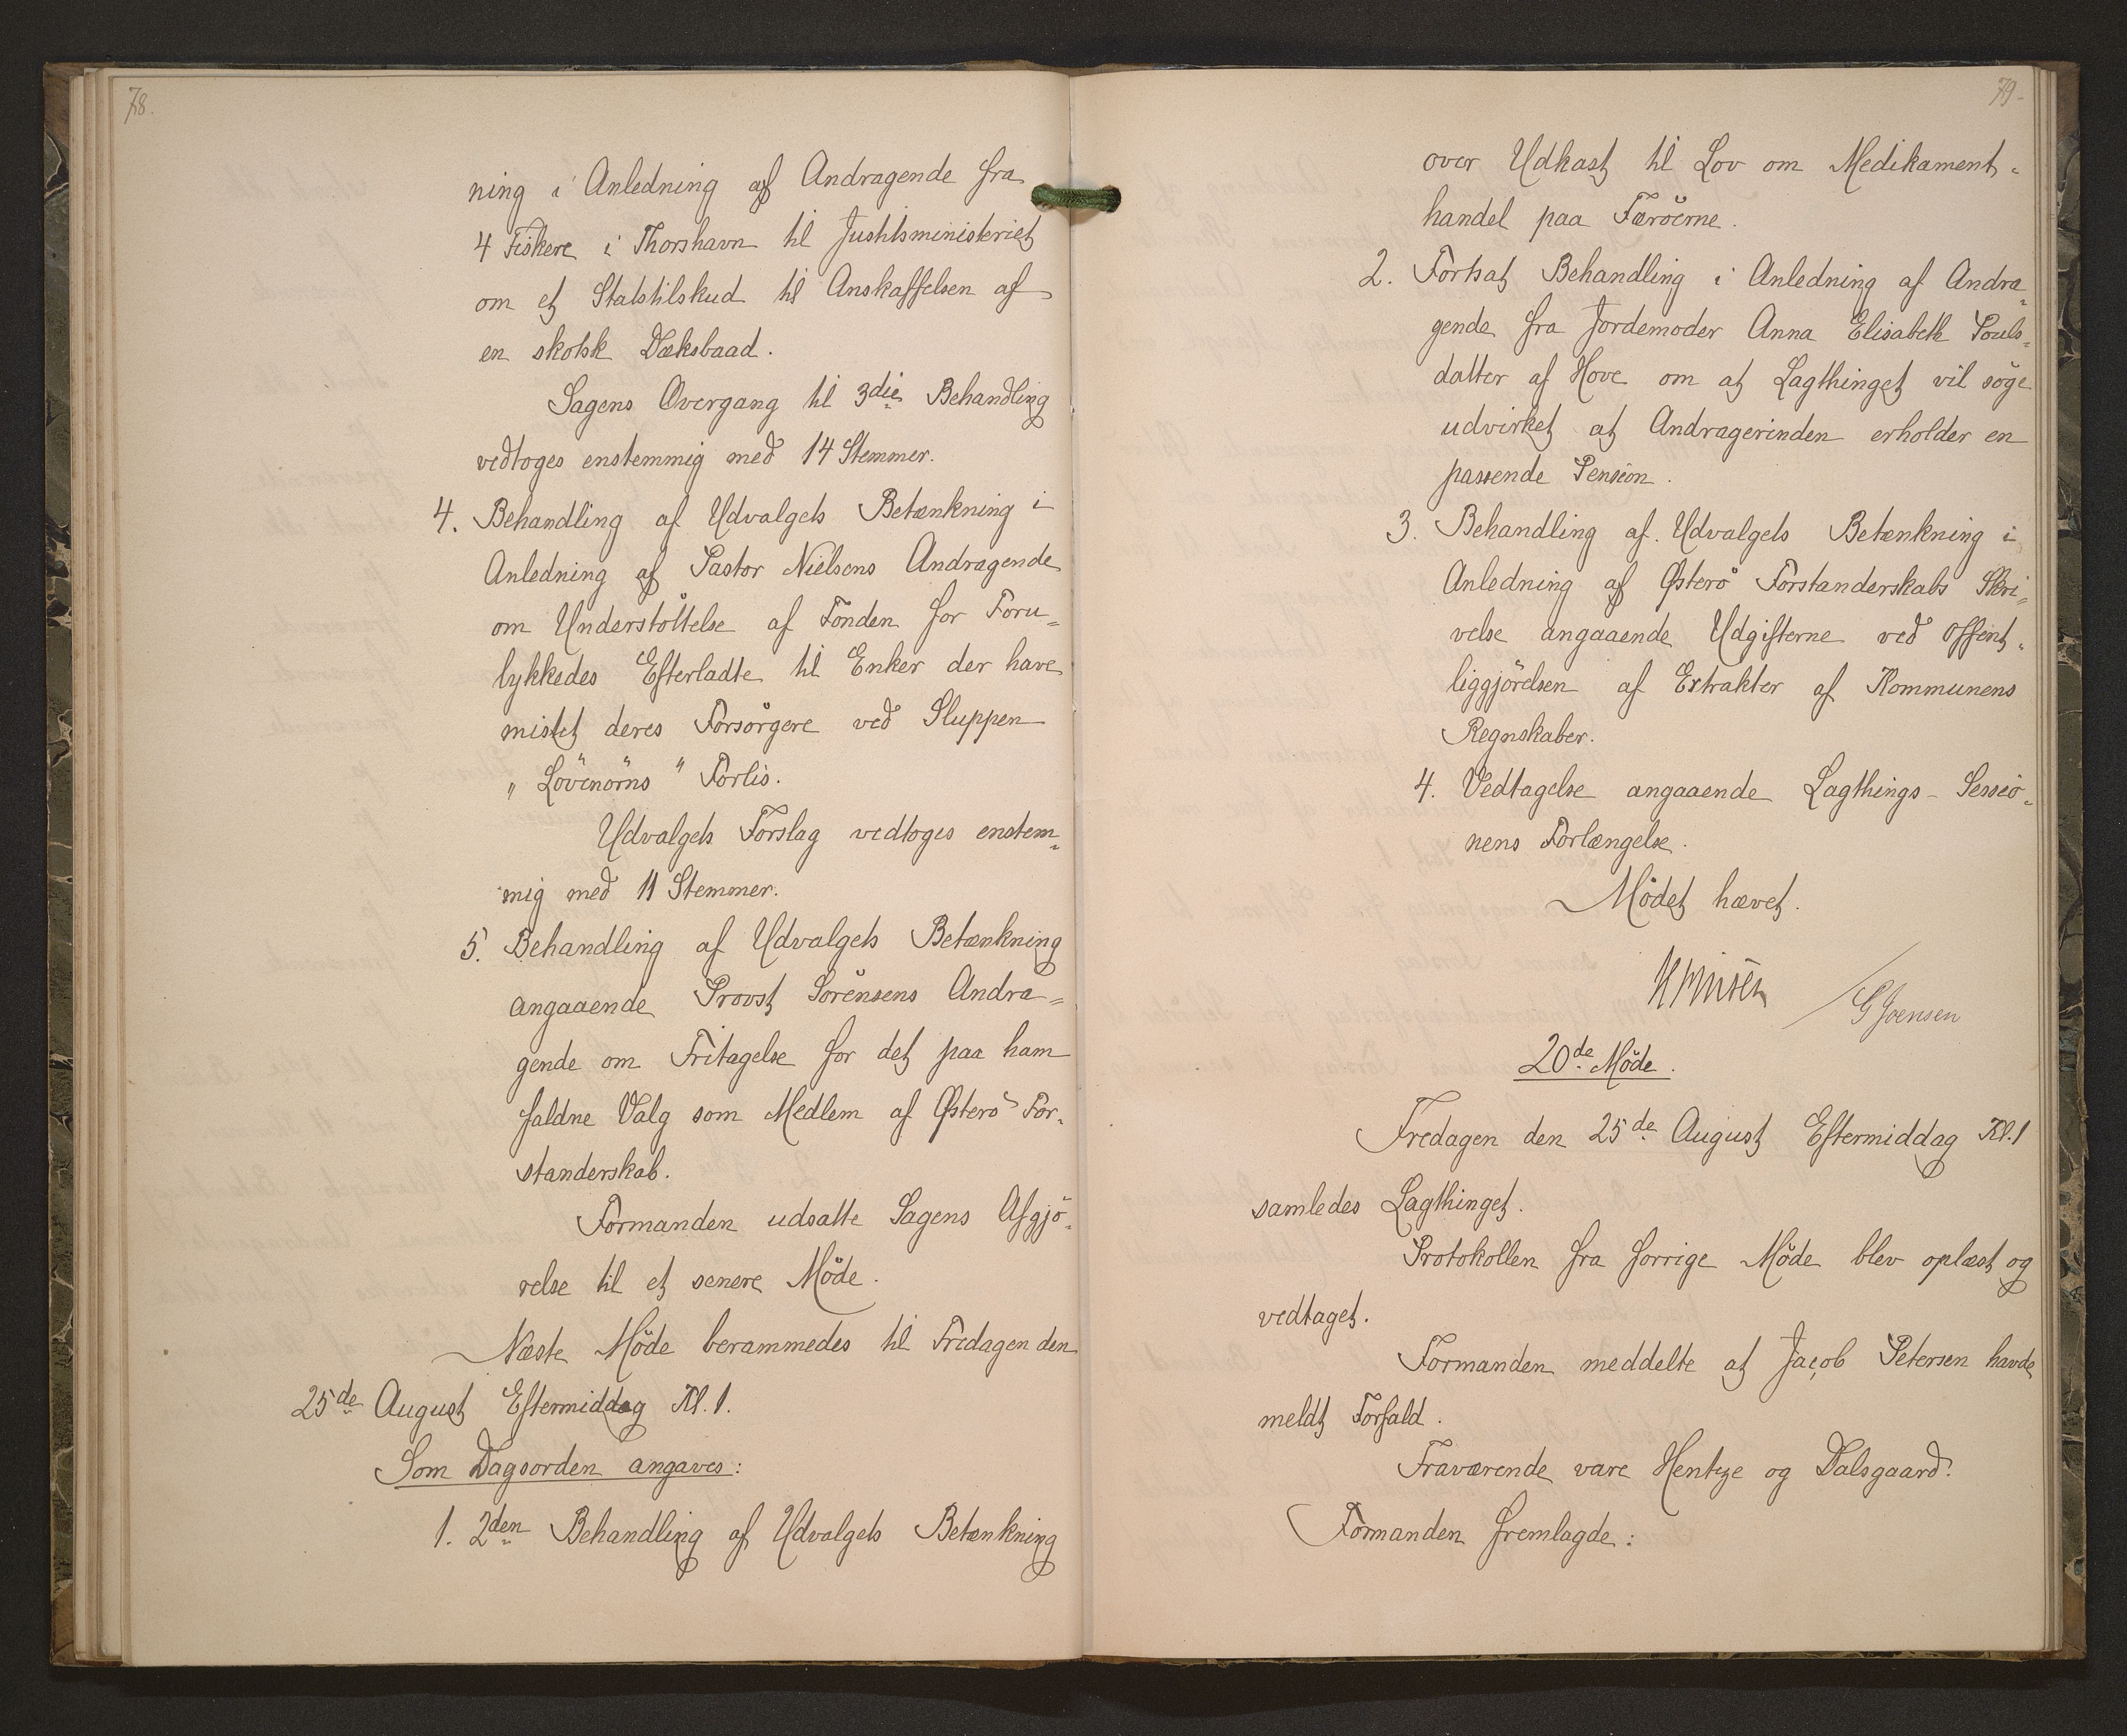 78.
ning i Anledning af Andragende fra
4 Fiskere i Thorshavn til Justitsministeriet
om et Statstilskud til Anskaffelsen af
en skotsk Dæksbaad.
Sagens Overgang til 3die Behandling
vedtoges enstemmig med 14 Stemmer.
4. Behandling af Udvalgets Betænkning i
Anledning af Pastor Nielsens Andragende
om Understöttelse af Fonden for Foru=
lykkedes Efterladte til Enker der have
mistet deres Forsörgere ved Sluppen
"Lövenörns" Forlis.
Udvalgets Forslag vedtoges enstem=
mig med 11 Stemmer.
5. Behandling af Udvalgets Betænkning
angaaende Provst Sörensens Andra=
gende om Fritagelse for det paa ham
faldne Valg som Medlem af Østerö For=
standerskab.
Formanden udsatte Sagens Afgjö=
relse til et senere Möde.
Næste Möde berammedes til Fredagen den
25de August Eftermiddag Kl. 1.
Som Dagsorden angaves:
1. 2den Behandling af Udvalgets Betænkning
79.
over Udkast til Lov om Medikament=
handel paa Færöerne.
2. Fortsat Behandling i Anledning af Andra=
gende fra Jordemoder Anna Elisabeth Pouls=
datter af Hove om at Lagthinget vil söge
udvirket at Andragerinden erholder en
passende Pension.
3. Behandling af Udvalgets Betænkning i
Anledning af Østerö Forstanderskabs Skri=
velse angaaende Udgifterne ved Offent=
liggjörelsen af Extrakter af Kommunens
Regnskaber.
4. Vedtagelse angaaende Lagthings-Sessio=
nens Forlængelse.
Mödet hævet.
G Joensen
20de Möde.
Fredagen den 25de August Eftermiddag Kl. 1
samledes Lagthinget.
Protokollen fra forrige Möde blev oplæst og
vedtaget.
Formanden meddelte at Jacob Petersen havde
meldt Forfald.
Fraværende vare Hentze og Dalsgaard.
Formanden fremlagde: